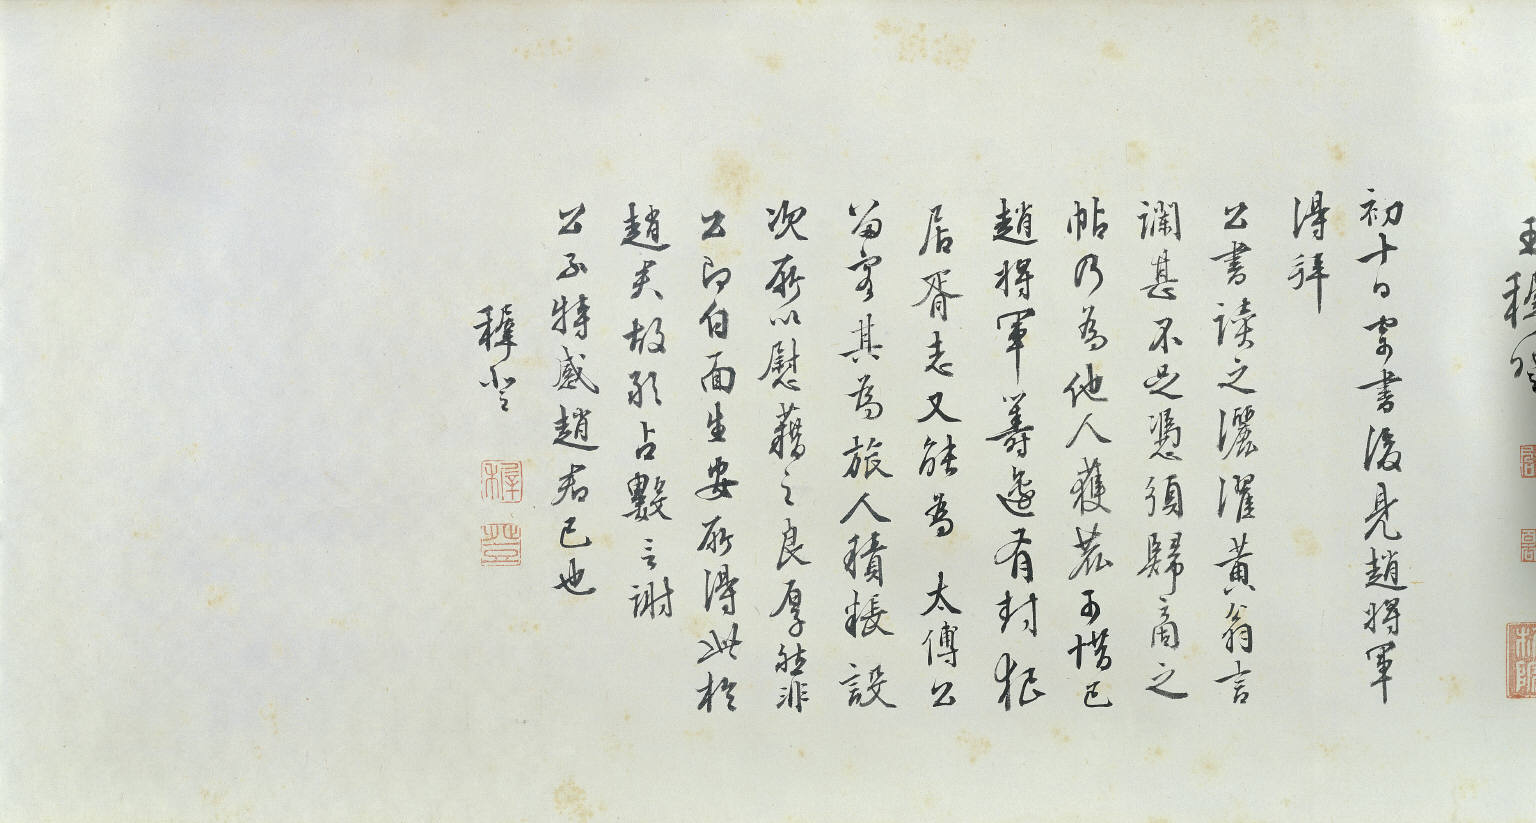 王穉登
初十日寄書後見趙將軍
得拜
公書讀之灑濯黃翁言
讕甚不足憑須歸商之
帖乃為他人獲可惜已
趙將軍籌邊有封狼
居胥志又能為 太傅公
留客其為旅人積粻設
次所以慰藉之良厚然非
公即白面生安所得此於
趙矣故敢占數言謝
公不特感趙君已也
穉登
穉
登